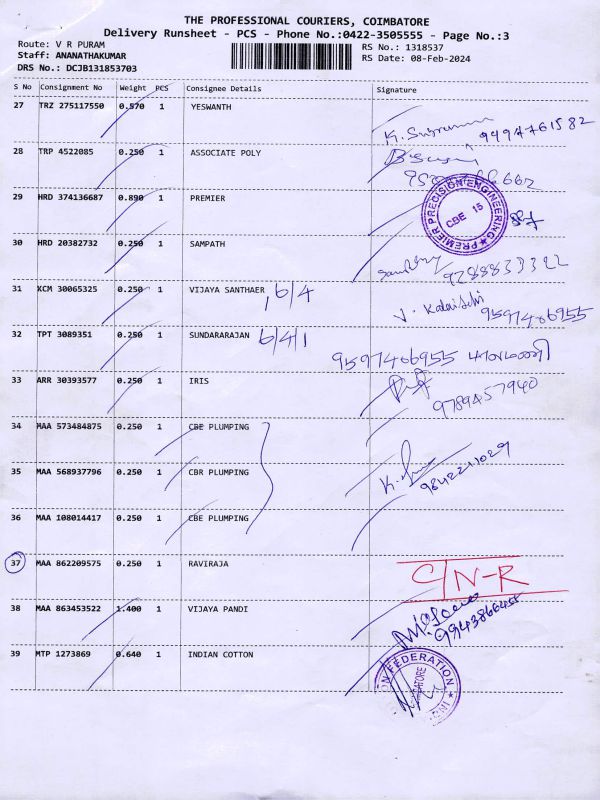 THE PROFESSIONAL COURIERS, COIMBATORE
Delivery Runsheet - PCS - Phone No.:0422-3505555 - Page No.:3
Route: V R PURAM
RS No.: 1318537
Staff: ANANATHAKUMAR
RS Date: 08-Feb-2024
DRS No.: DCJB131853703
S No Consignment No Weight PCS Consignee Details Signature
27 TRZ 275117550 0.570 1 YESWANTH
9494761582
28 TRP 4522085 0.250 1 ASSOCIATE POLY
29 HRD 374136687 0.890 1 PREMIER
PREMIER PRECISION ENGINEERING
CBE 15
30 HRD 20382732 0.250 1 SAMPATH
31 KCM 30065325 0.250 1 VIJAYA SANTHAER 6/4
9597466955
32 TPT 3089351 0.250 1 SUNDARARAJAN 6/4/1
9597466955
33 ARR 30393577 0.250 1 IRIS
9789457940
34 MAA 573484875 0.250 1 CBE PLUMPING
35 MAA 568937796 0.250 1 CBR PLUMPING
36 MAA 108014417 0.250 1 CBE PLUMPING
37 MAA 862209575 0.250 1 RAVIRAJA
C/N-R
38 MAA 863453522 1.400 1 VIJAYA PANDI
39 MTP 1273869 0.640 1 INDIAN COTTON
FEDERATION